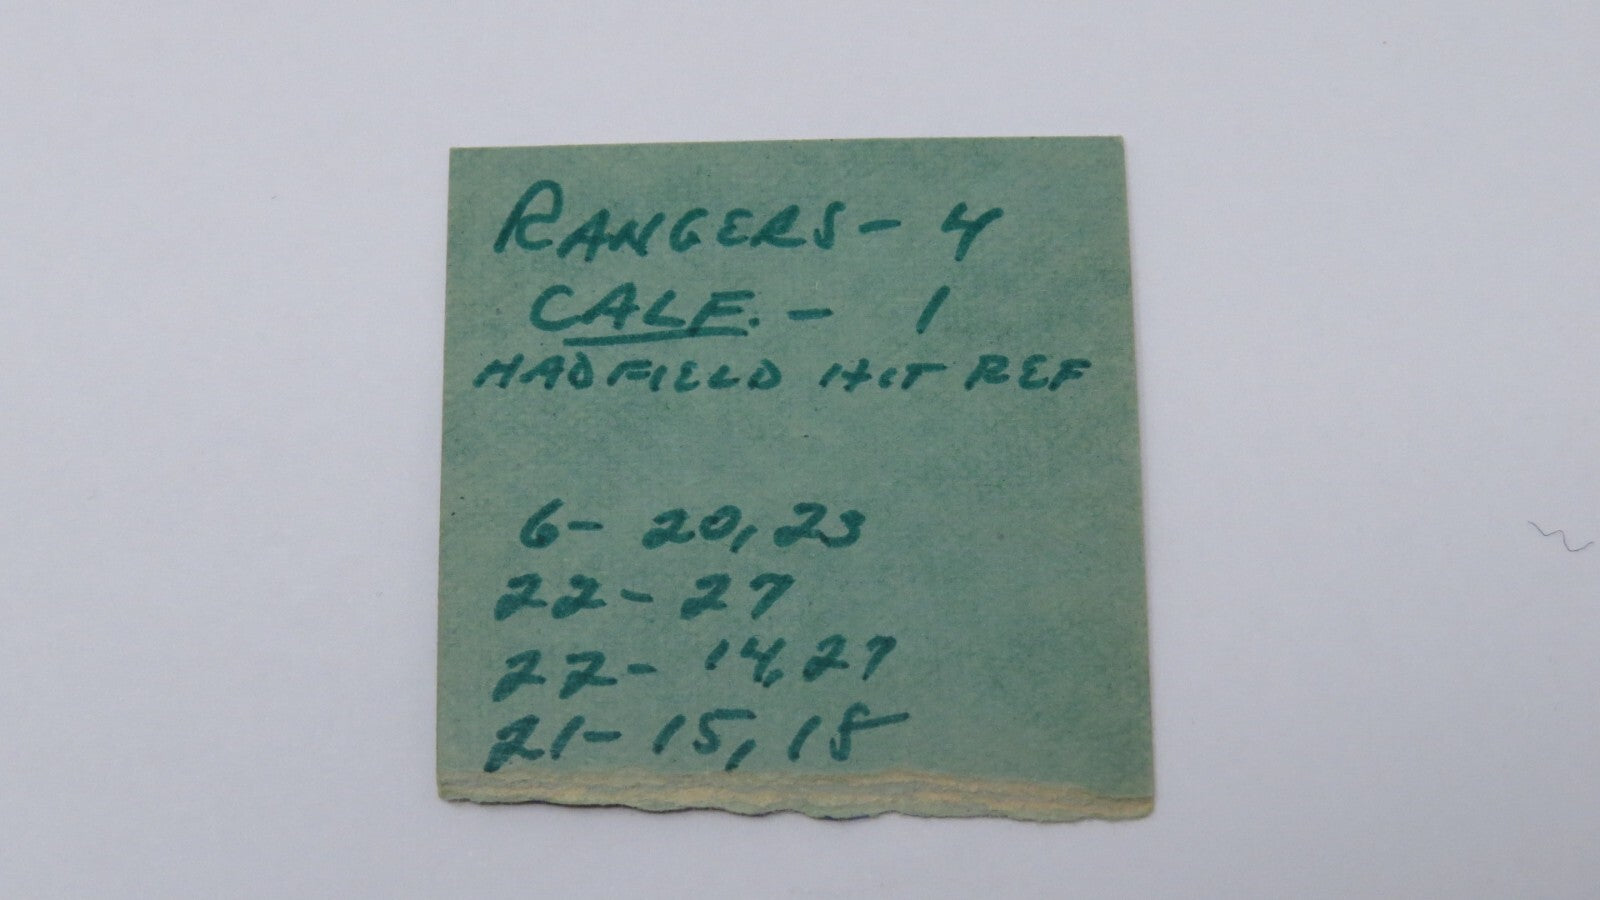 RANGERS - 4
CALF. - 1
HADFIELD HIT REF
6 - 20, 23
22 - 27
22 - 14, 27
21 - 15, 18